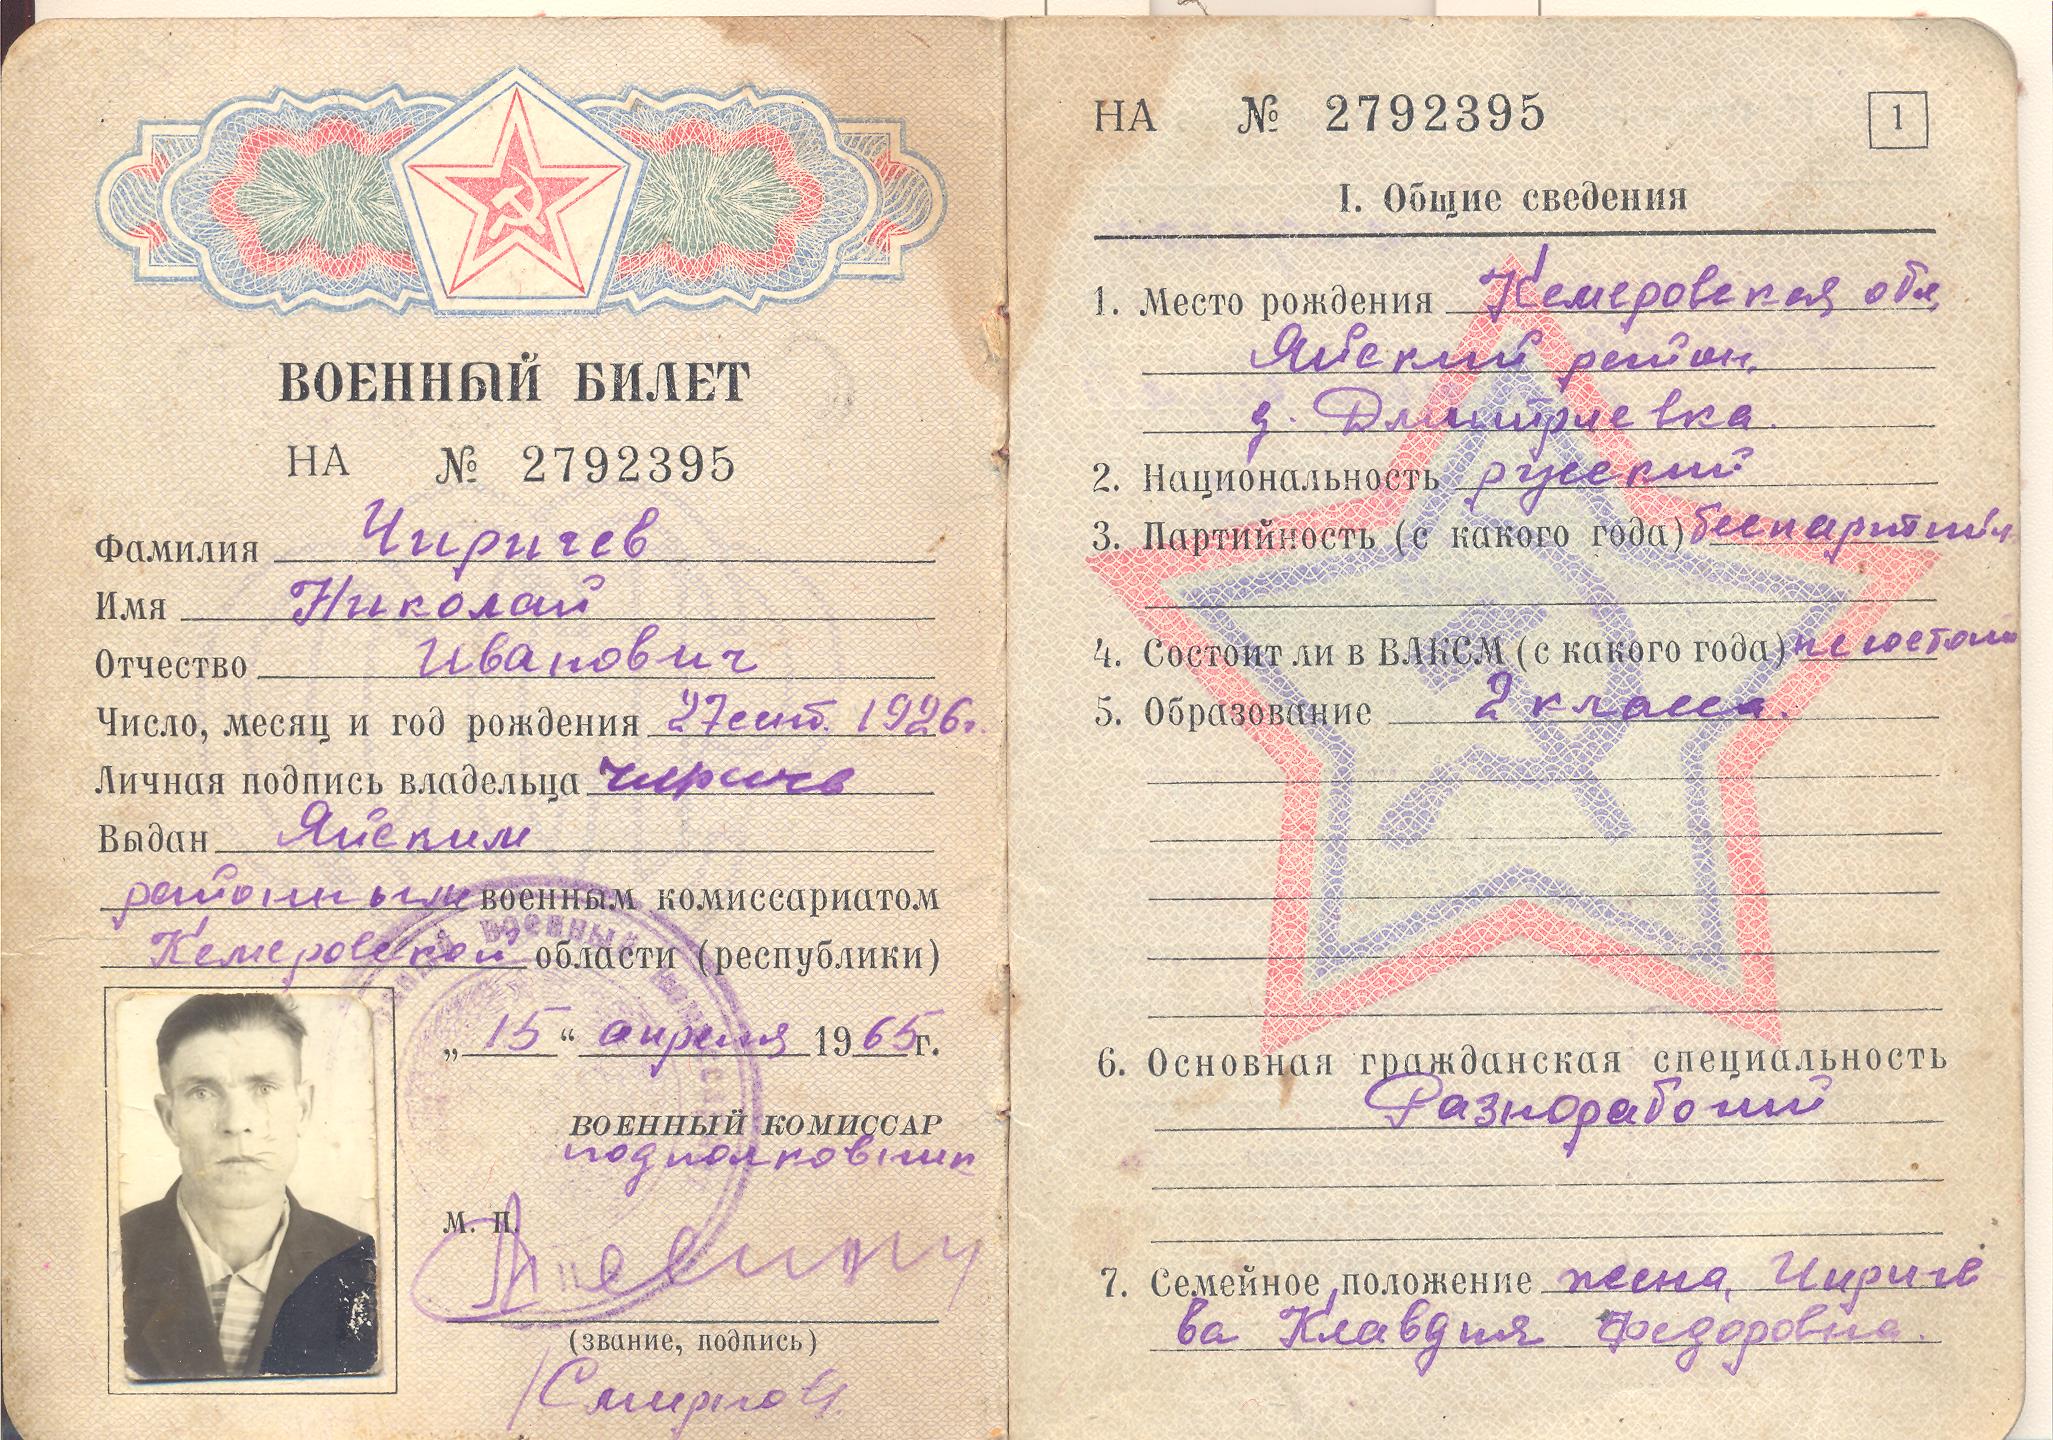 ВОЕННЫЙ БИЛЕТ
НА № 2792395
Фамилия Чиричев
Имя Николай
Отчество Иванович
Число, месяц и год рождения 27 сент. 1926 г.
Личная подпись владельца Чиричев
Выдан Яйским
районным военным комиссариатом
Кемеровской области (республики)
„15“ апреля 1965 г.
ВОЕННЫЙ КОМИССАР
подполковник
М. П.
(звание, подпись)
НА № 2792395
1
I. Общие сведения
1. Место рождения Кемеровская обл,
Яйский район,
д. Дмитриевка.
2. Национальность русский
3. Партийность (с какого года) беспартийн
4. Состоит ли в ВЛКСМ (с какого года) не состоит
5. Образование 2 класса.
6. Основная гражданская специальность
Разнорабочий
7. Семейное положение жена, Чириче
ва Клавдия Федоровна.